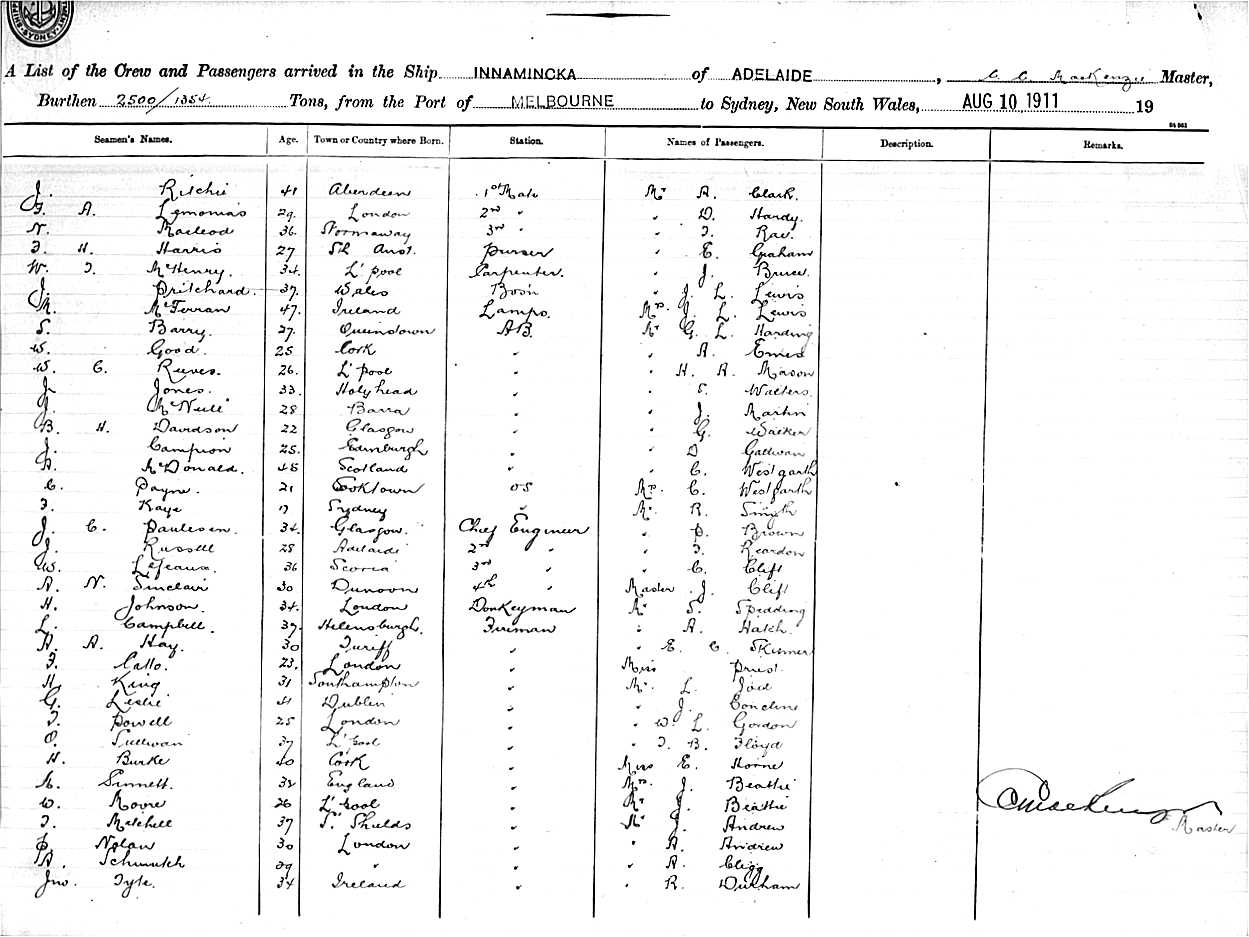 A List of the Crew and Passengers arrived in the Ship INNAMINCKA of ADELAIDE, C. C. MacKenzie Master,
Burthen 2500/1354 Tons, from the Port of MELBOURNE to Sydney, New South Wales, AUG 10, 1911 19
Seamen's Names. Age. Town or Country where Born. Station. Names of Passengers. Description. Remarks.
J. Ritchie 41 Aberdeen 1st Mate Mr A. Clark.
A. 29 London 2nd " " D. Hardy.
N. Macleod 36 Stornaway 3rd " " Rae.
F. H. Harris 27 Sth Aust. Purser " E. Graham
W. McHenry. 34 L'pool Carpenter. " J. Bruce
J. Pritchard. 37 Wales Bosn " J. L. Lewis
McFerran 47 Ireland Lamps. Mrs J. L. Lewis
Barry. 27 Queenstown AB. Mr G. L. Harding
W. Good. 25 Cork " " A.
W. C. Reeves. 26. L'pool " " H. A. Mason
J. Jones. 33 Holyhead " " Walters.
J. McNeill 28 Barra " " J. Martin
B. H. Davidson 22 Glasgow " " G. Walker
J. Campion 25. Edinburgh " " D
McDonald. 48 Scotland " " C. Westgarth
C. Payne. 21 Cooktown OS Mrs C. Westgarth
F. Kaye Sydney " Mr R. Smyth
J. C. 34. Glasgow. Chief Engineer " Brown
J. Russell 28 Adelaide 2nd " " Reardon
W. 36 3rd " " C. Clift
A. N. Sinclair 30 Dunoon 4th " Master J. Clift
H. Johnson. 34. London Donkeyman Mr S. Spedding
L. Campbell. 37. Helensburgh. Fireman " A. Hatch.
A. Hay. 30 Turiff " " E. C. Skinner
F. Catto. 23. London " Miss Priest.
H. King 31 Southampton " Mr. L. Joel
G. Leslie 41 Dublin " " J.
Powell 25 London " " W. L. Gordon
Sullivan 37 L'pool " " B. Floyd
H. Burke 40 Cork " Miss E. Horne
Sinnett. 38 England " Mrs J. Beattie
W. Moore 26 L'pool " Mr J. Beattie
Mitchell 37 Shields " Mr J. Andrew
Nolan 30 London " " A. Andrew
A. 29 " " " A. Clegg
Jno. 34 Ireland " " R. Durham
C MacKenzie
Master